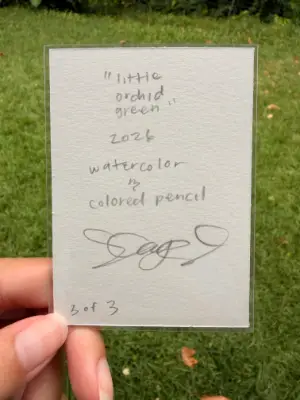 "little
orchid
green"
2026
watercolor
&
colored pencil
3 of 3